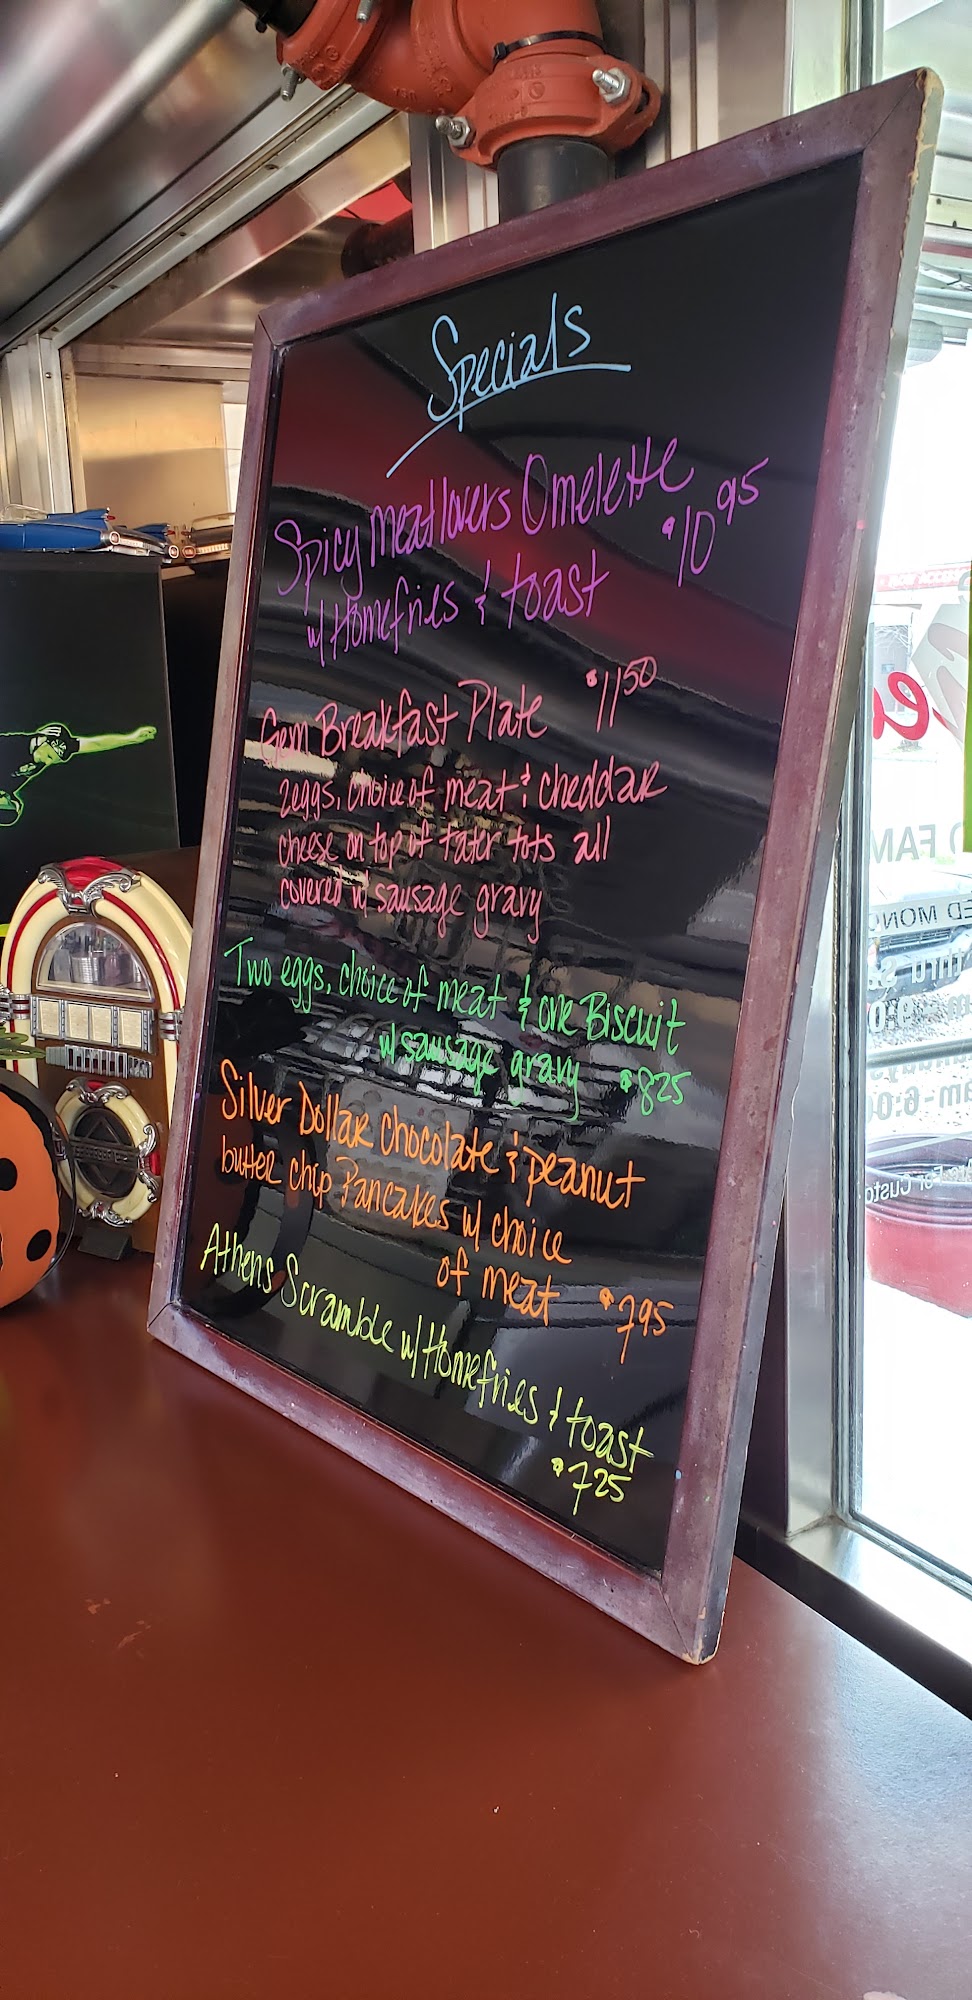 Specials
Spicy Meatlovers Omelette
w/ Homefries & toast $10 95
Gem Breakfast Plate $11 50
2 eggs, choice of meat & cheddar
cheese on top of tater tots all
covered w/ sausage gravy
Two eggs, choice of meat & one Biscuit
w/ sausage gravy $8 25
Silver Dollar Chocolate & peanut
butter chip Pancakes w/ choice
of meat $7 95
Athens Scramble w/ Homefries & toast
$7 25